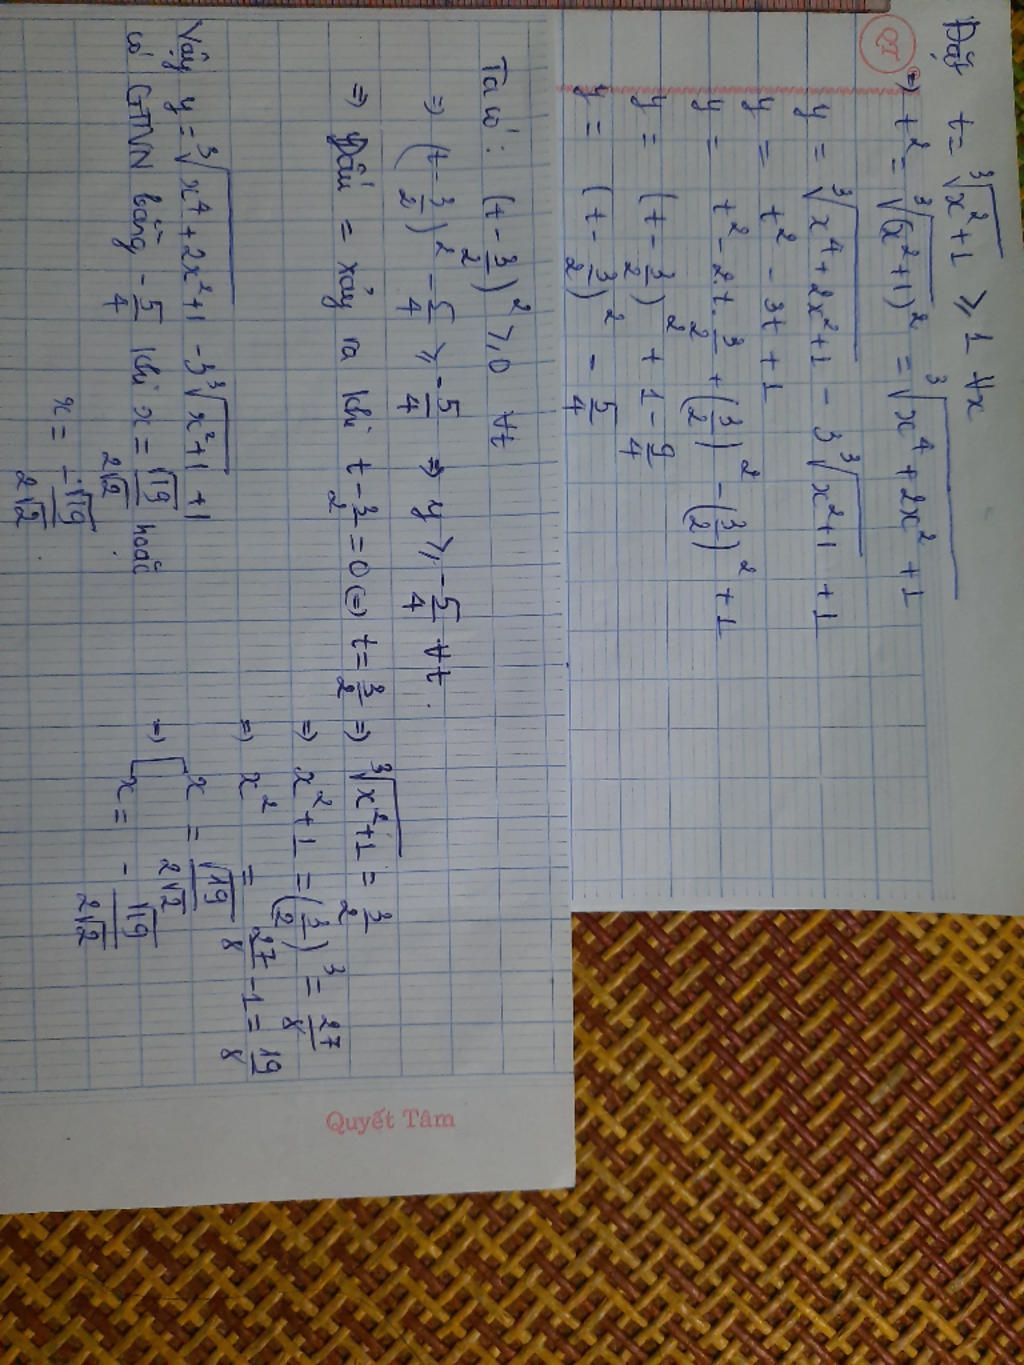 Đặt t = ∛(x²+1) ≥ 1 ∀x
⇒ t² = ∛((x²+1)²) = ∛(x⁴ + 2x² + 1)
y = ∛(x⁴+2x²+1) - 3∛(x²+1) + 1
y = t² - 3t + 1
y = t² - 2t.3/2 + (3/2)² - (3/2)² + 1
y = (t - 3/2)² + 1 - 9/4
y = (t - 3/2)² - 5/4
Ta có: (t - 3/2)² ≥ 0 ∀t
⇒ (t - 3/2)² - 5/4 ≥ -5/4 ⇒ y ≥ -5/4 ∀t.
⇒ Dấu = xảy ra khi t - 3/2 = 0 (=) t = 3/2 ⇒ ∛(x²+1) = 3/2
⇒ x²+1 = (3/2)³ = 27/8
⇒ x² = 27/8 - 1 = 19/8
⇒ [ x = √19/2√2
x = -√19/2√2
Vậy y = ∛(x⁴+2x²+1) - 3∛(x²+1) + 1
có GTNN bằng -5/4 khi x = √19/2√2 hoặc
x = -√19/2√2.
Quyết Tâm